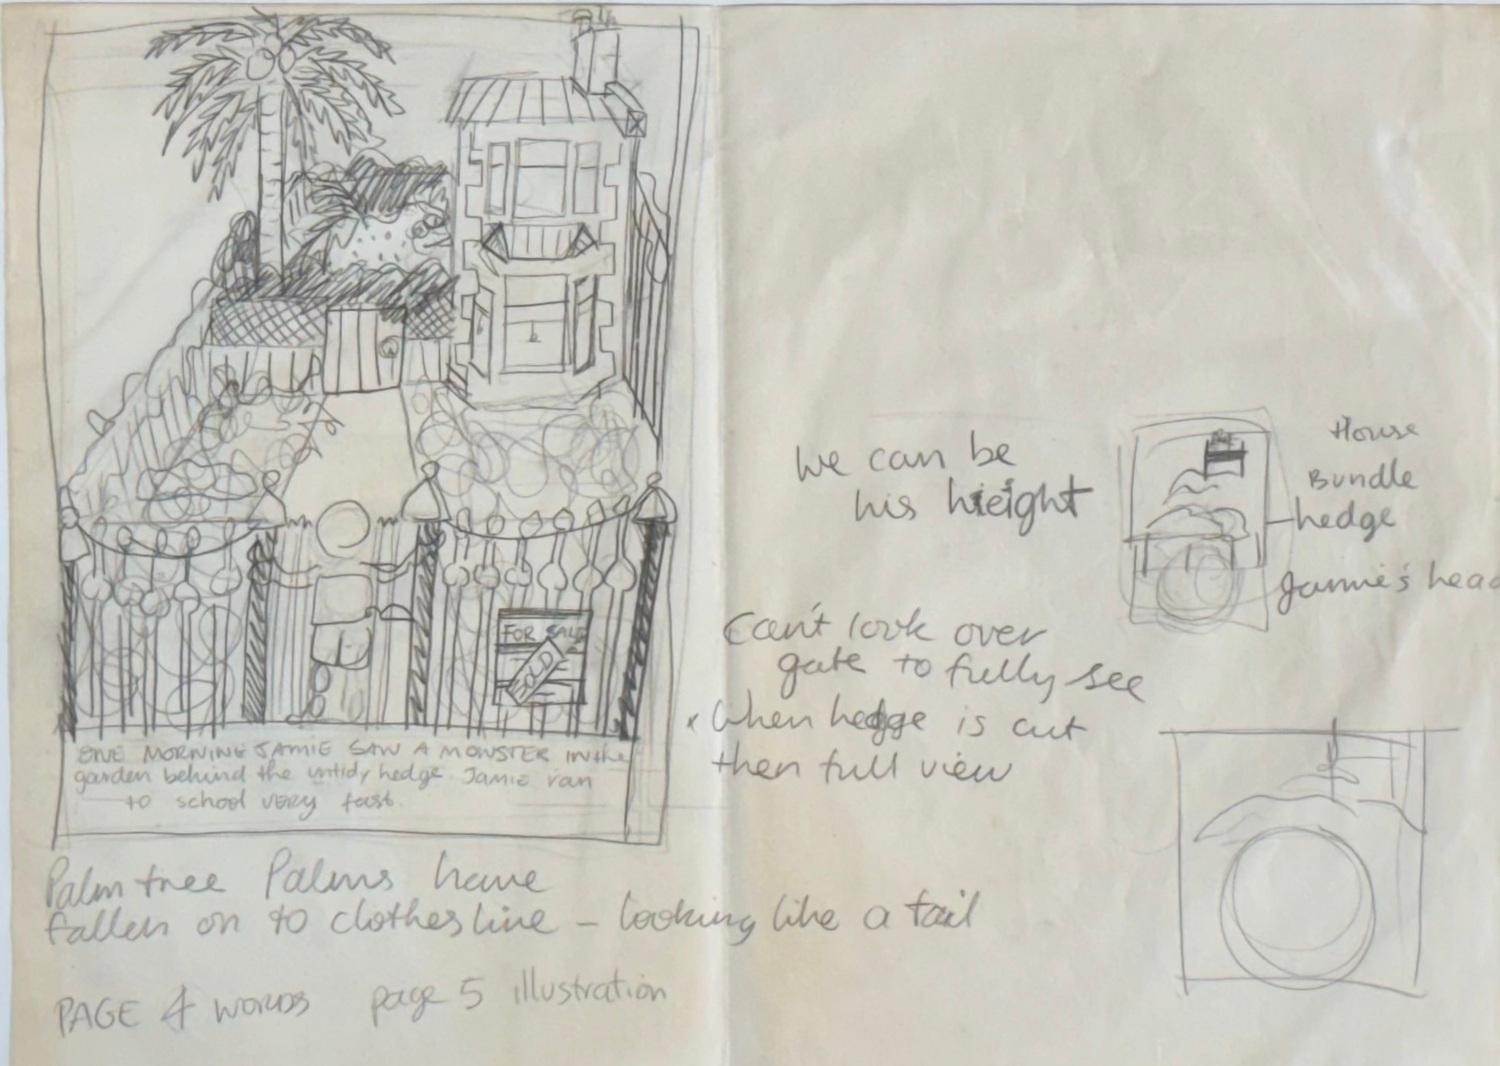 FOR SALE
SOLD
ONE MORNING JAMIE SAW A MONSTER IN the
garden behind the untidy hedge. Jamie ran
to school VERY fast.
Palm tree Palms have
fallen on to clothes line – looking like a tail
PAGE 4 WORDS page 5 illustration
We can be
his hieight
Can't look over
gate to fully see
x When hedge is cut
then full view
House
Bundle
hedge
Jamie's head